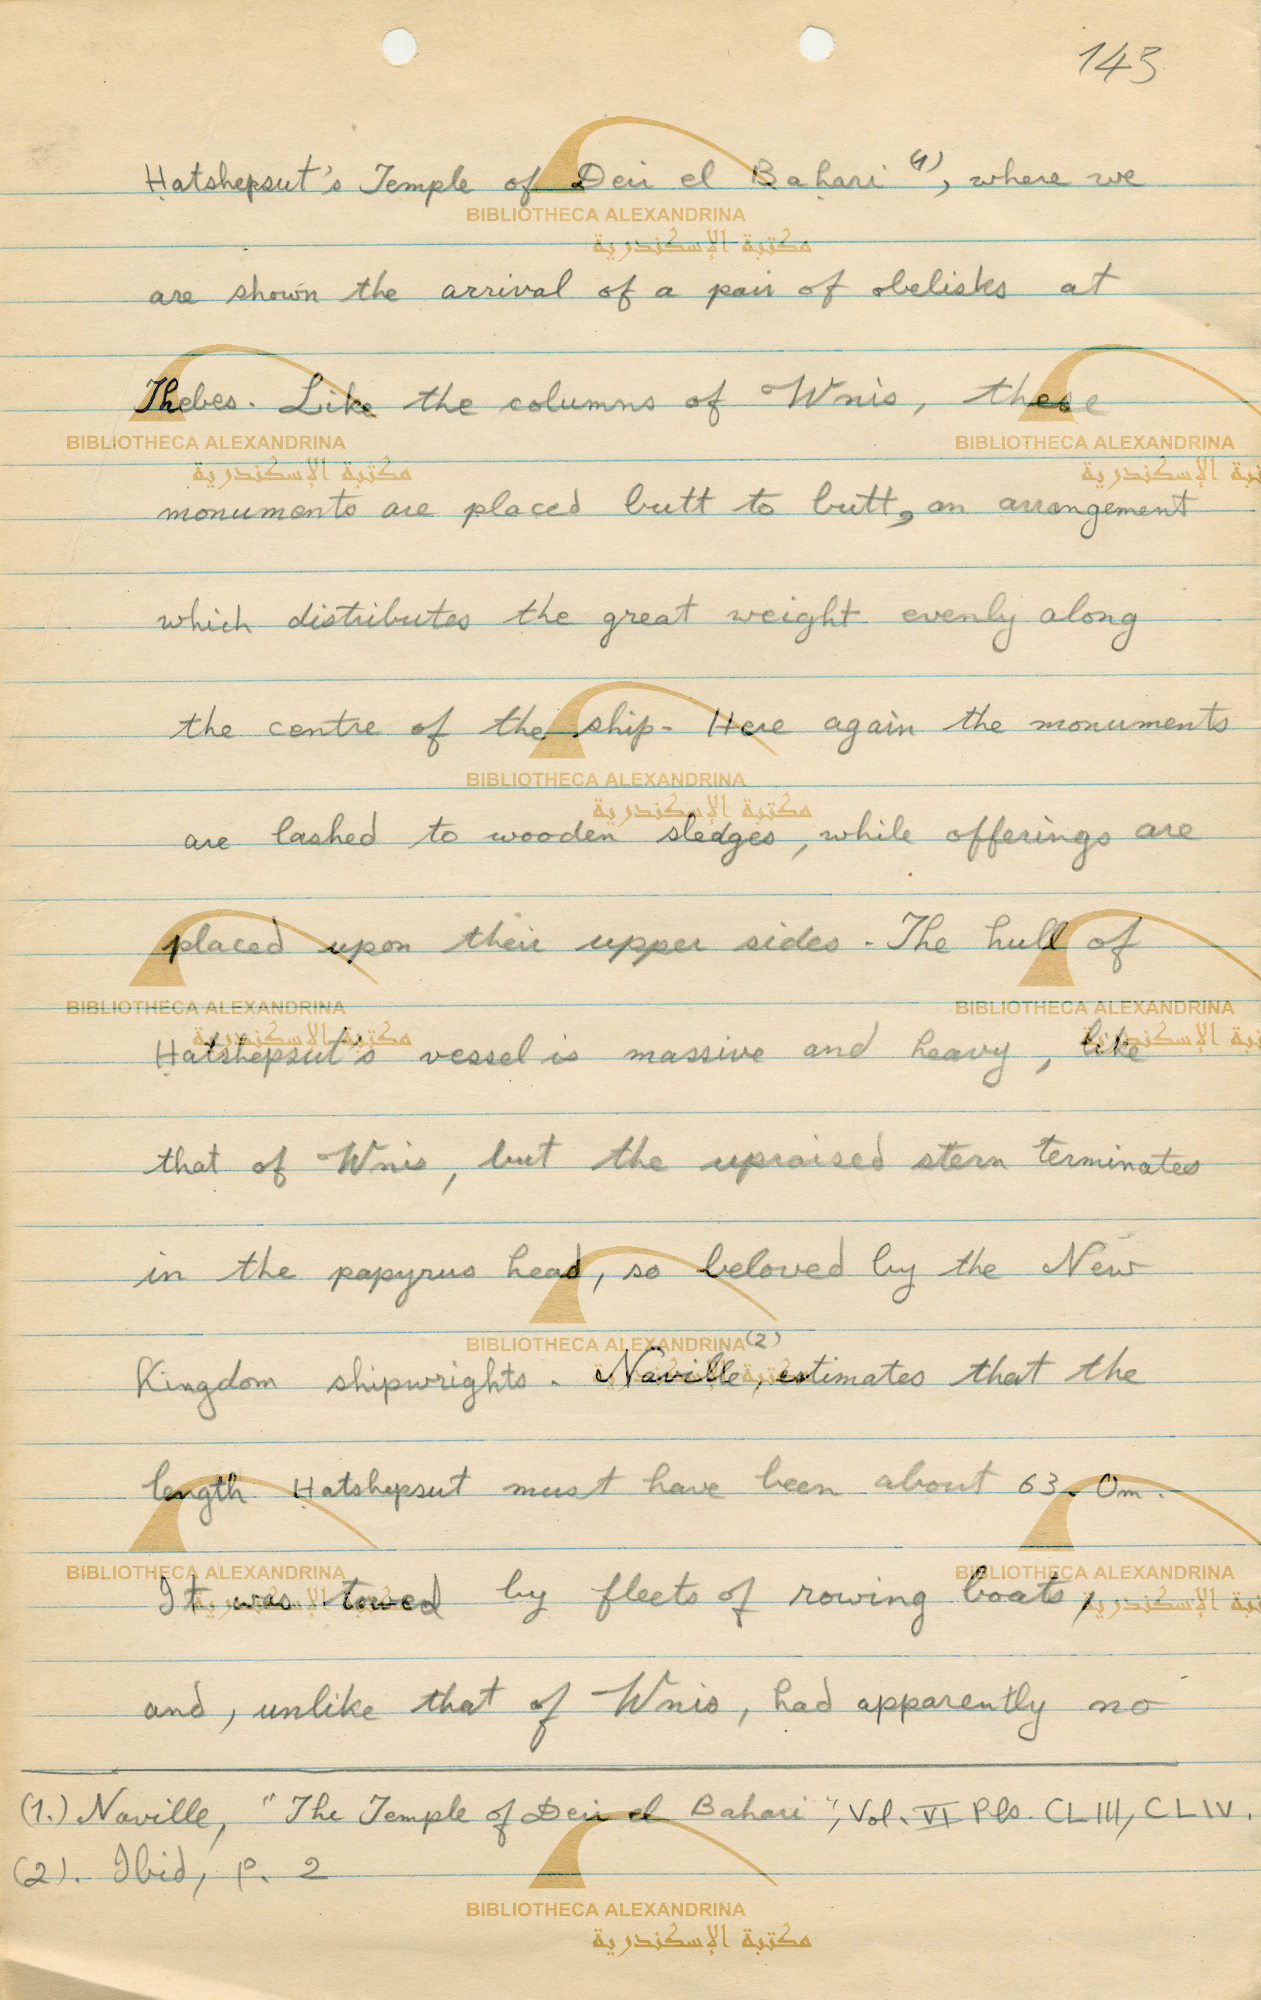 143
Ḥatshepsut's Temple of Deir el Baḥari (1), where we
are shown the arrival of a pair of obelisks at
Thebes. Like the columns of Wnis, these
monuments are placed butt to butt, an arrangement
which distributes the great weight evenly along
the centre of the ship. Here again the monuments
are lashed to wooden sledges, while offerings are
placed upon their upper sides. The hull of
Ḥatshepsut's vessel is massive and heavy, like
that of Wnis, but the upraised stern terminates
in the papyrus head, so beloved by the New
Kingdom shipwrights. Naville (2), estimates that the
length Ḥatshepsut must have been about 63.0m.
It was towed by fleets of rowing boats,
and, unlike that of Wnis, had apparently no
(1.) Naville, "The Temple of Deir el Bahari", Vol. VI Pls. CLIII, CLIV.
(2). Ibid, P. 2
BIBLIOTHECA ALEXANDRINA
مكتبة الإسكندرية